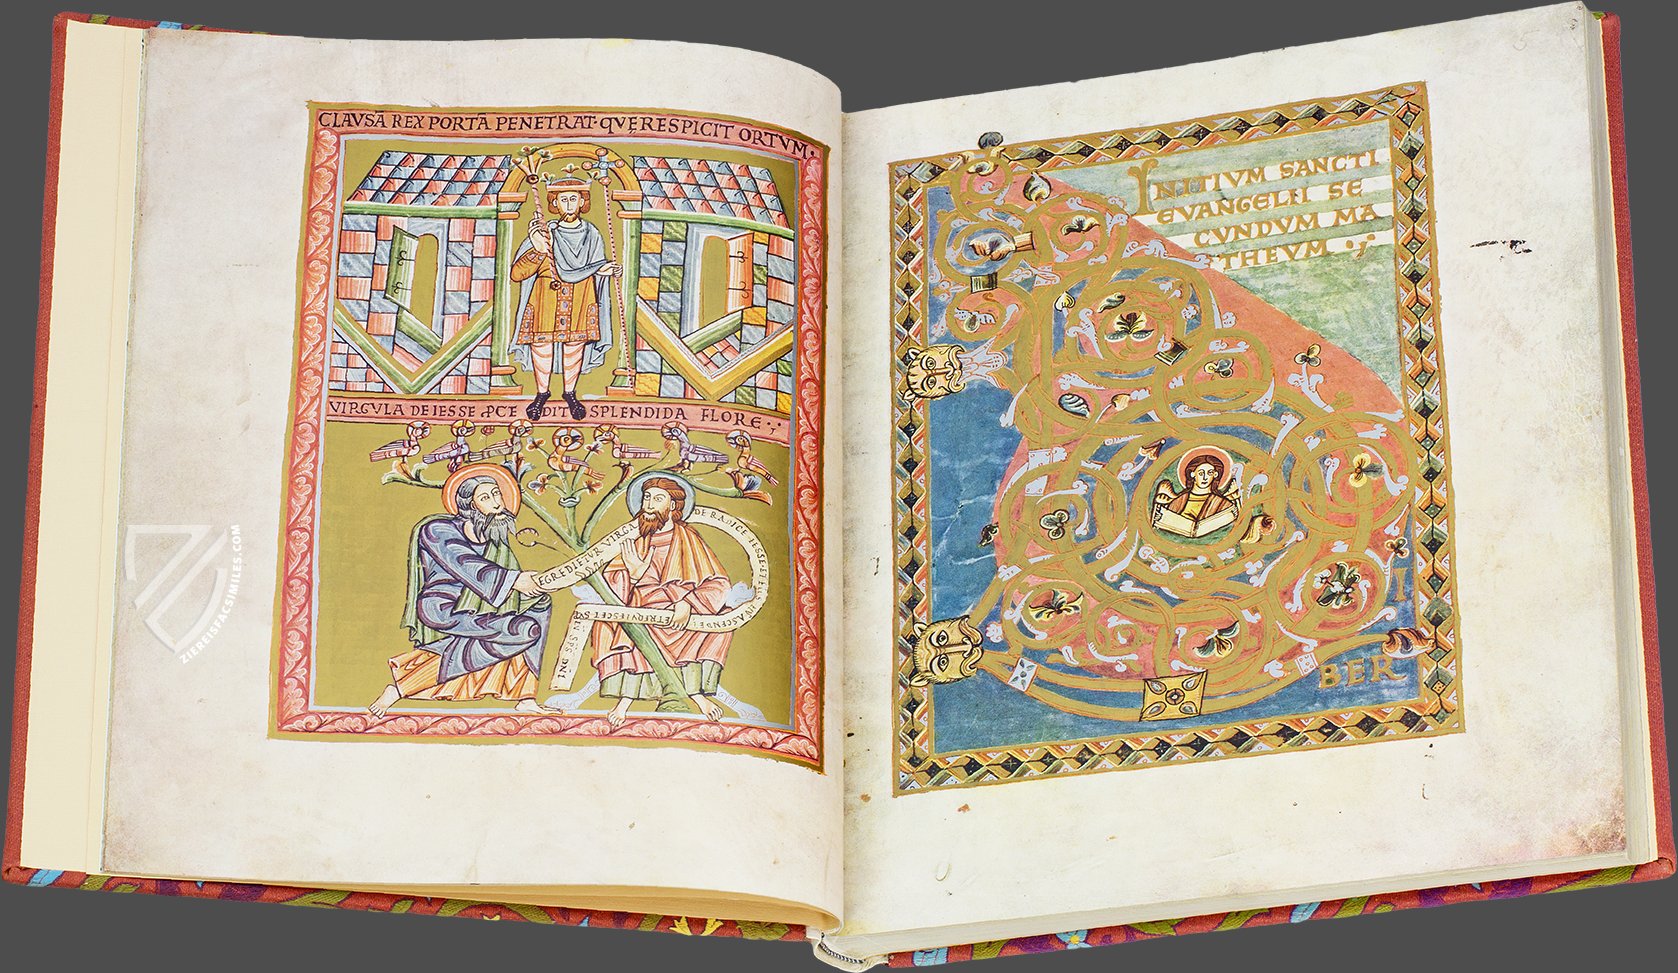 CLAVSA REX PORTĀ PENETRAT · QVĘ RESPICIT ORTVM ·
VIRGVLA DE IESSE DIT SPLENDIDA FLORE
EGREDIETUR VIRGA
DE RADICE IESSE ET
ASCENDE
ET REQUIESCET
INITIVM SANCTI
EVANGELII SE
CVNDVM MA
THEVM
I
BER
ZIEREISFACSIMILES.COM